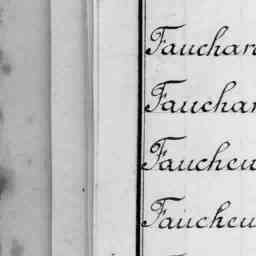 Fauchar
Fauchar
Faucheu
Faucheu